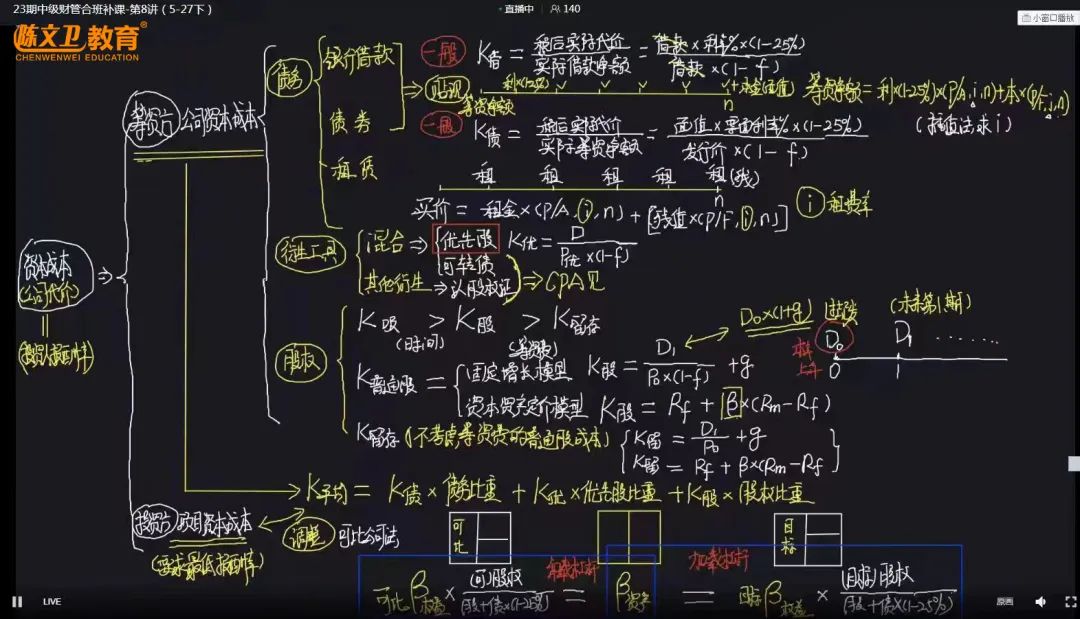 23期中级财管合班补课-第8讲（5-27下）
直播中 140
小窗口播放
陈文卫教育
CHENWENWEI EDUCATION
资本成本
(公司代价)
筹资方 公司资本成本
债务
银行借款
债券
租赁
一般
K借 = 税后实际代价/实际借款净额 = 借款×利率%×(1-25%)/借款×(1-f)
贴现
利×(1-25%)
筹资净额
n
筹资净额=利×(1-25%)×(P/A,i,n)+本×(P/F,i,n)
(插值法求i)
一般
K债 = 税后实际代价/实际筹资净额 = 面值×票面利率%×(1-25%)/发行价×(1-f)
租 租 租 租 租(残)
n
买价 = 租金×(P/A,i,n) + [残值×(P/F,i,n)]
i 租费率
衍生工具
混合 ⇒ 优先股
K优 = D/P优×(1-f)
可转债
其他衍生 ⇒ 认股权证
⇒ CPA见
股权
K吸 > K股 > K留存
(时间) (筹资费)
D0×(1+g)
(未来第1期)
D0 D1 ······
0 1
K普通股 =
固定增长模型 K股 = D1/P0×(1-f) +g
资本资产定价模型 K股 = Rf + β×(Rm-Rf)
K留存(不考虑筹资费的普通股成本)
K留 = D1/P0 +g
K留 = Rf + β×(Rm-Rf)
K平均 = K债×债务比重 + K优×优先股比重 + K股×股权比重
投资方 项目资本成本
(要求最低报酬率)
调整 可比公司法
可比
目标
卸载杠杆 加载杠杆
可比β权益 × (可)股权/股+债×(1-25%) = β资产 = 目标β权益 × (目标)股权/股+债×(1-25%)
LIVE
原画